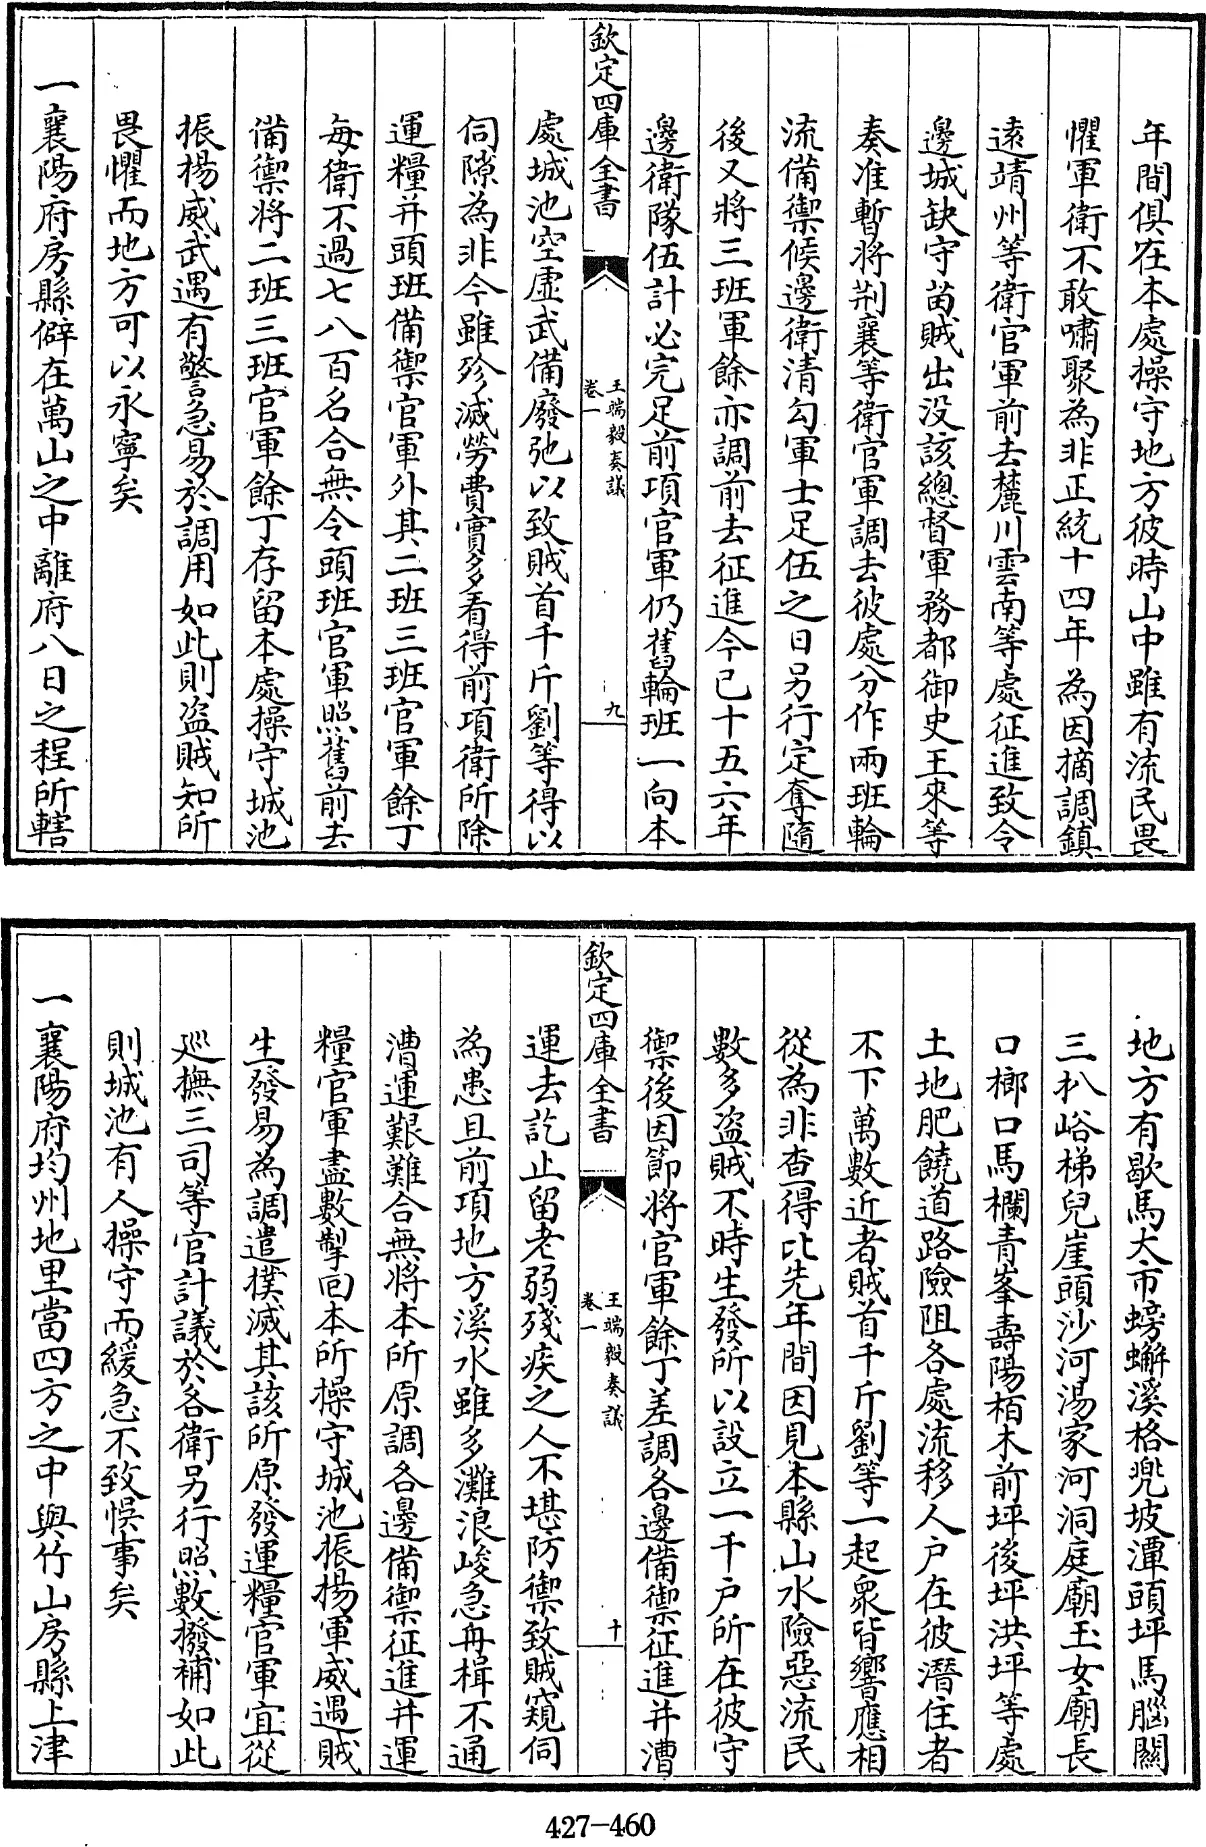 年間俱在本處操守地方彼時山中雖有流民畏
懼軍衛不敢嘯聚為非正統十四年為因摘調鎮
遠靖州等衛官軍前去麓川雲南等處征進致令
邊城缺守苗賊出没該總督軍務都御史王來等
奏准暫將荆襄等衛官軍調去彼處分作兩班輪
流備禦候邊衛清勾軍士足伍之日另行定奪隨
後又將三班軍餘亦調前去征進今已十五六年
邊衛隊伍計必完足前項官軍仍舊輪班一向本
欽定四庫全書
王端毅奏議
卷一
九
處城池空虛武備廢弛以致賊首千斤劉等得以
伺隙為非今雖殄滅勞費實多看得前項衛所除
運糧并頭班備禦官軍外其二班三班官軍餘丁
每衛不過七八百名合無令頭班官軍照舊前去
備禦將二班三班官軍餘丁存留本處操守城池
振揚威武遇有警急易於調用如此則盜賊知所
畏懼而地方可以永寧矣
一襄陽府房縣僻在萬山之中離府八日之程所轄
地方有歇馬大市螃蠏溪格兜坡潭頭坪馬腦關
三扒峪梯兒崖頭沙河湯家河洞庭廟玉女廟長
口榔口馬欄青峯壽陽栢木前坪後坪洪坪等處
土地肥饒道路險阻各處流移人户在彼潛住者
不下萬數近者賊首千斤劉等一起衆皆響應相
從為非查得比先年間因見本縣山水險惡流民
數多盜賊不時生發所以設立一千户所在彼守
禦後因節將官軍餘丁差調各邊備禦征進并漕
欽定四庫全書
王端毅奏議
卷一
十
運去訖止留老弱殘疾之人不堪防禦致賊窺伺
為患且前項地方溪水雖多灘浪峻急舟楫不通
漕運艱難合無將本所原調各邊備禦征進并運
糧官軍盡數掣回本所操守城池振揚軍威遇賊
生發易為調遣撲滅其該所原發運糧官軍宜從
廵撫三司等官計議於各衛另行照數撥補如此
則城池有人操守而緩急不致悞事矣
一襄陽府均州地里當四方之中與竹山房縣上津
427-460